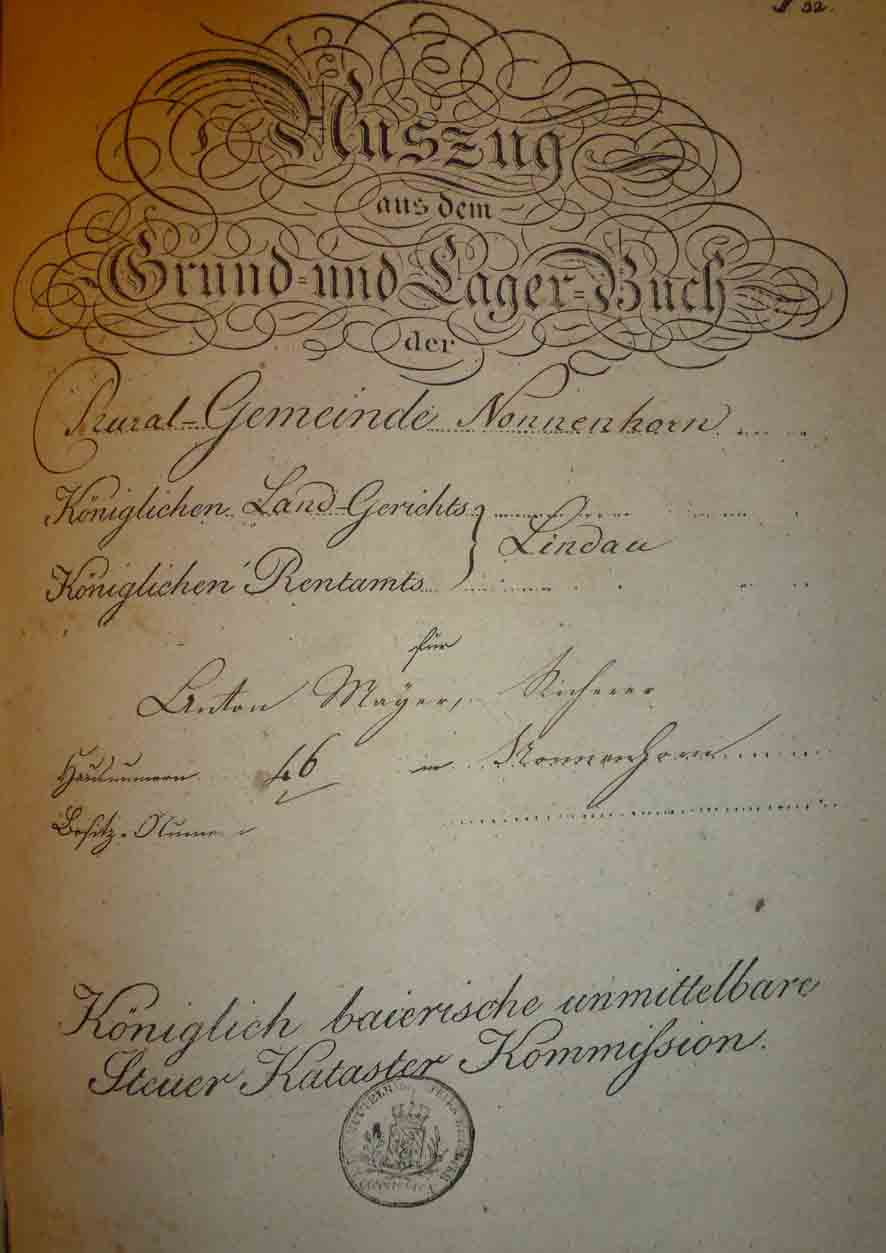 32.
Auszug
aus dem
Grund- und Lager-Buch
der
Rural-Gemeinde Nonnenhorn
Königlichen Land-Gerichts
Lindau
Königlichen Rentamts
für
Anton Mayer,
Hausnumern 46 in Nonnenhorn
Besitz-Numer
Königlich baierische unmittelbare
Steuer Kataster Kommission.